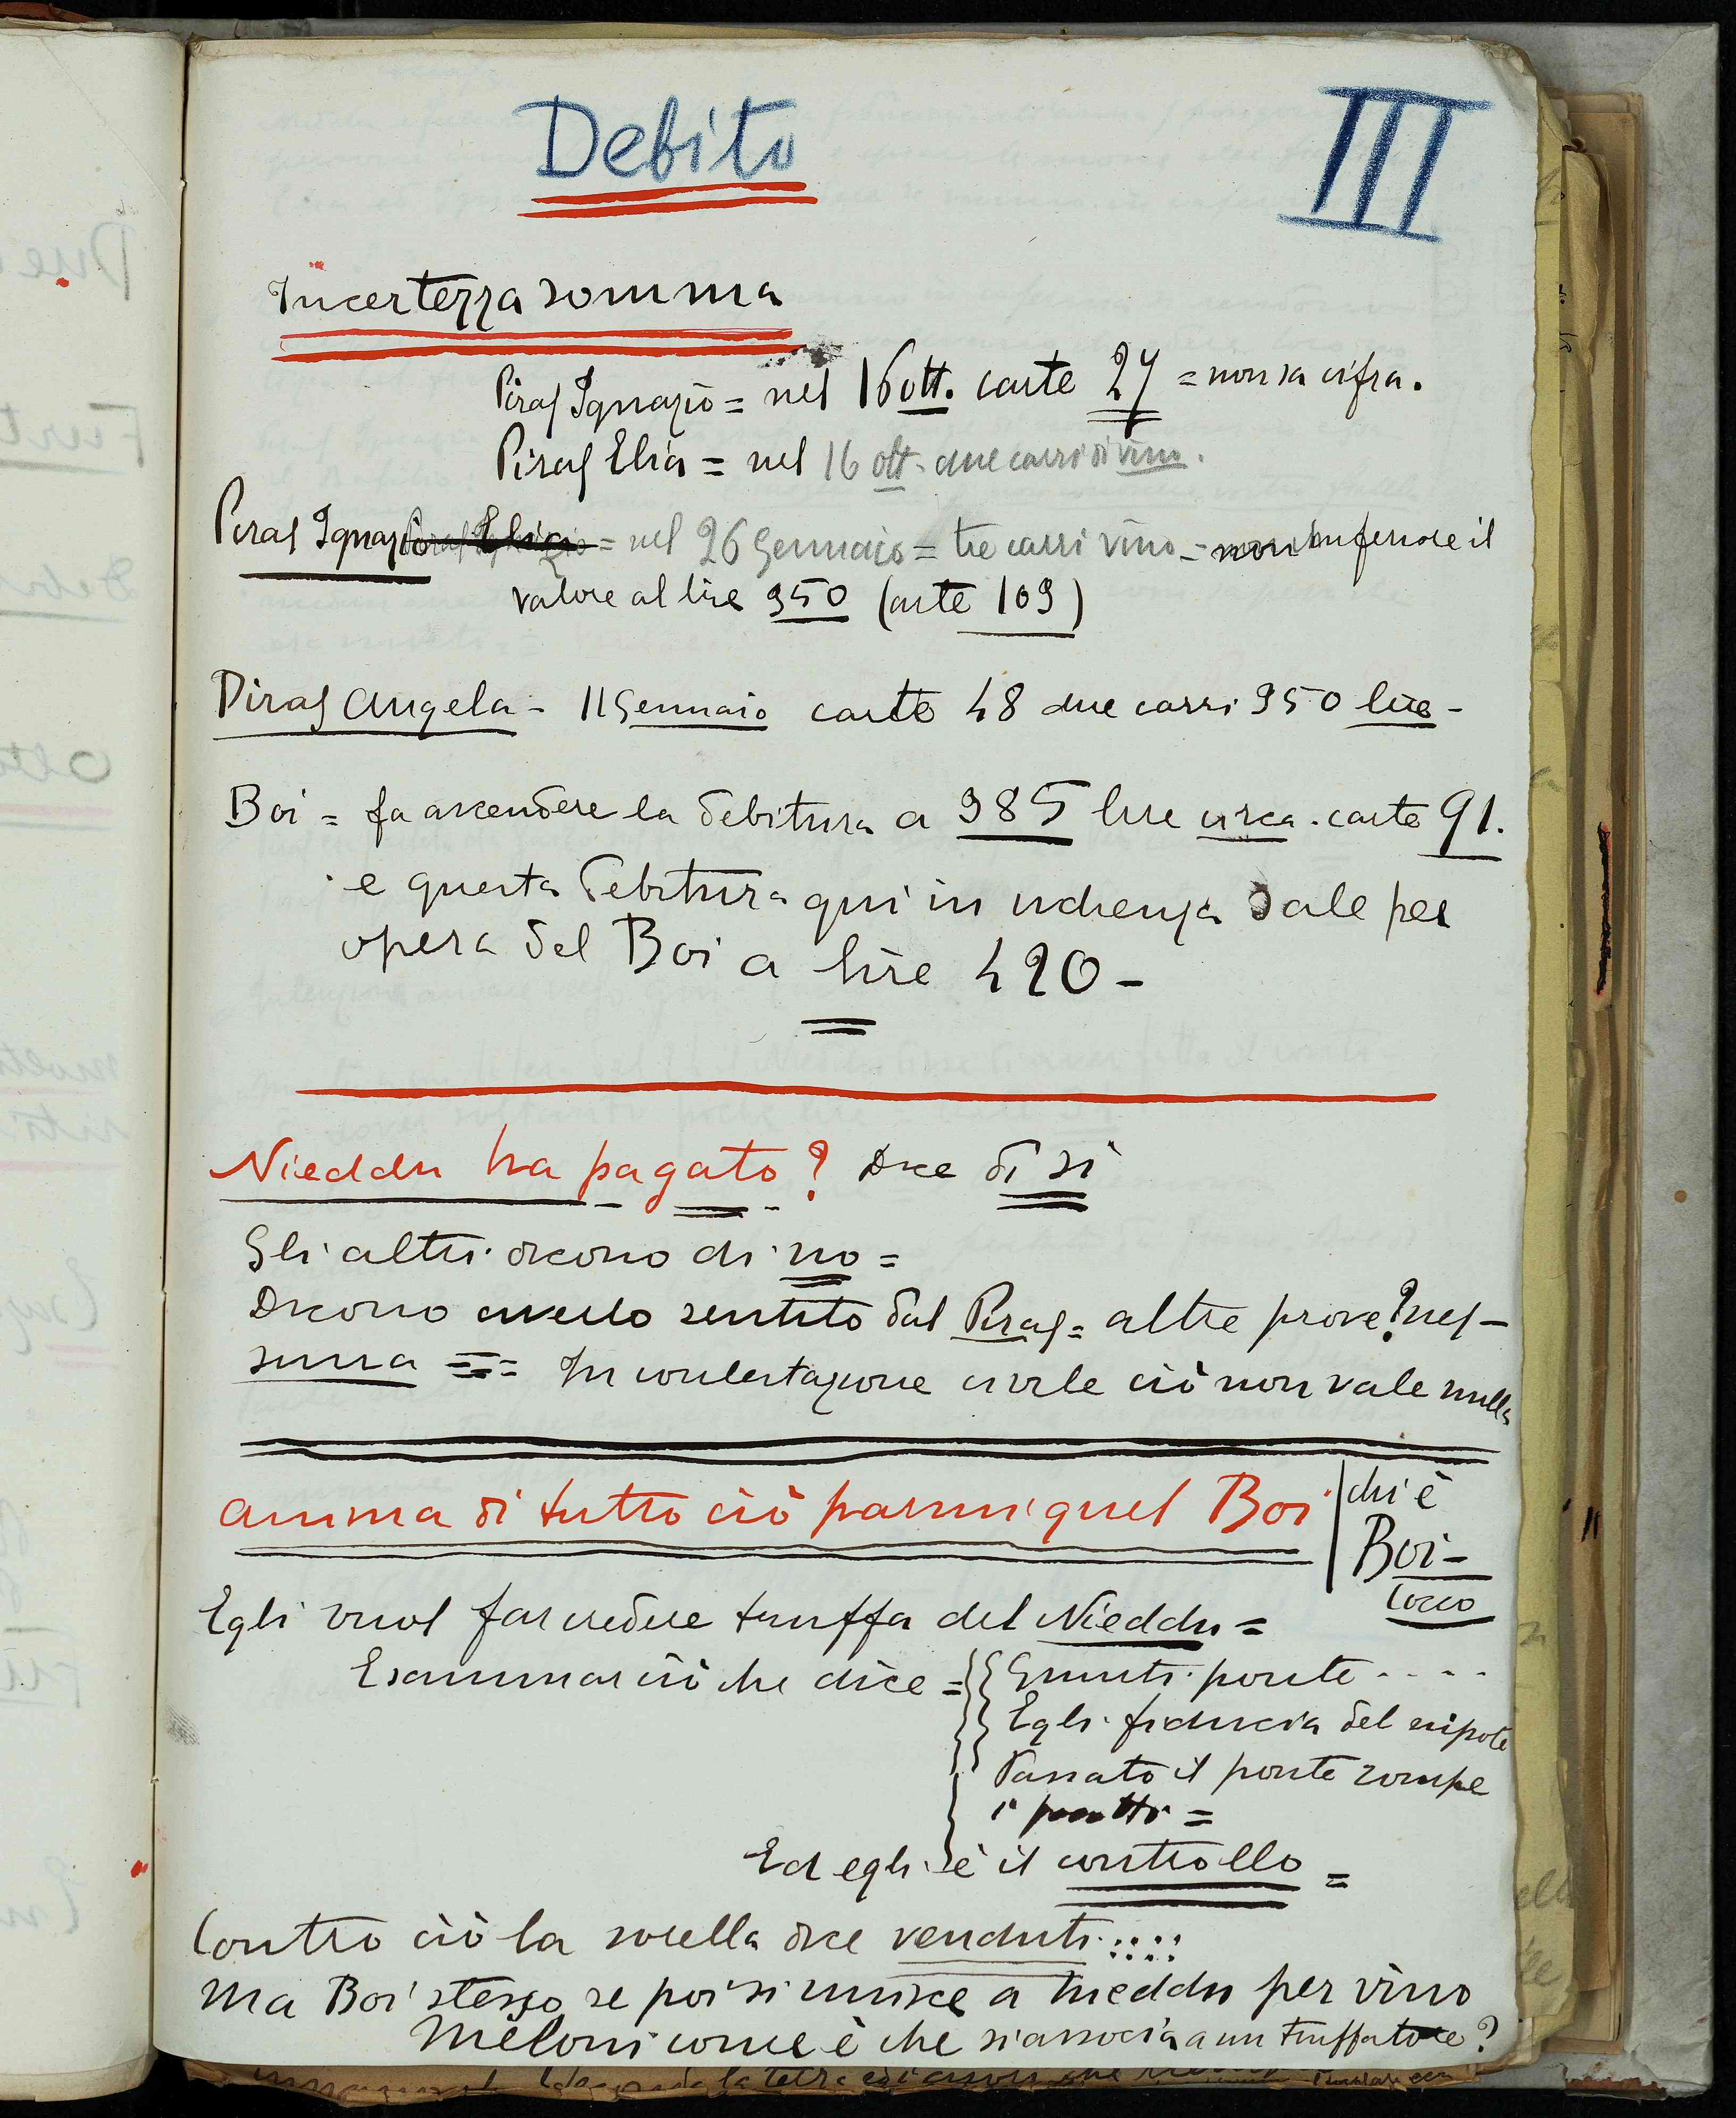 Debito
III
Incertezza somma
Piras Ignazio = nel 16 ott. carte 27 = non sa cifra.
Piras Elia = nel 16 ott. due carri di vino.
Piras Ignazio = nel 26 Gennaio = tre carri vino - non inferiore il
valore al lire 350 (carte 109)
Piras Angela - 11 Gennaio carte 48 due carri 350 lire -
Boi = fa ascendere la debitura a 385 lire circa. carte 91.
e questa debitura qui in udienza sale per
opera del Boi a lire 420 -
Nieddu ha pagato? Dice di si
Gli altri dicono di no =
Dicono averlo sentito dal Piras = altre prove? nes-
suna = In contestazione civile ciò non vale nulla
anima di tutto ciò parmi quel Boi
chi è
Boi -
Egli vuol far credere truffa del Nieddu =
Esaminar ciò che dice =
Giunti ponte ....
Egli fiducia del nipote
Passato il ponte rompe
i patti =
Ed egli è il controllo =
Contro ciò la sorella dice venduti :::::
Ma Boi stesso se poi si unisce a Nieddu per vino
Meloni come è che si associa a un truffatore?